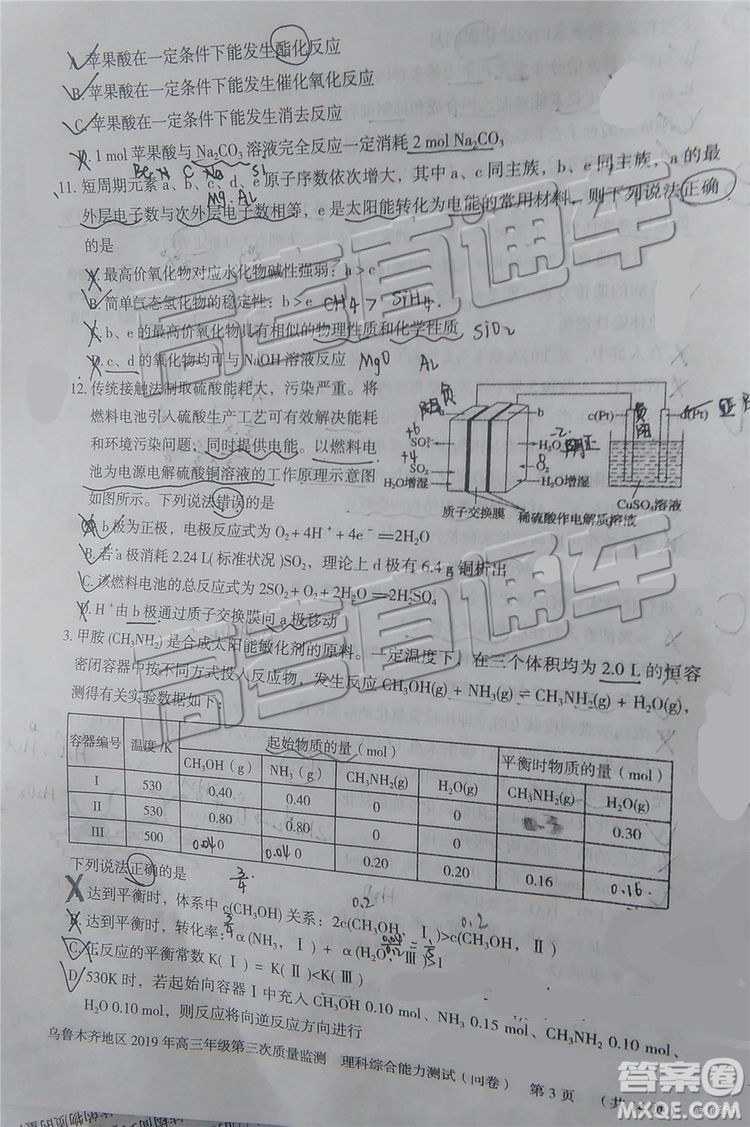 A. 苹果酸在一定条件下能发生酯化反应
B. 苹果酸在一定条件下能发生催化氧化反应
C. 苹果酸在一定条件下能发生消去反应
D. 1 mol 苹果酸与 Na₂CO₃ 溶液完全反应一定消耗 2 mol Na₂CO₃
Be C Na Si
11. 短周期元素 a、b、c、d、e 原子序数依次增大，其中 a、c 同主族，b、e 同主族，a 的最
Mg. AL
外层电子数与次外层电子数相等，e 是太阳能转化为电能的常用材料，则下列说法正确
的是
A. 最高价氧化物对应水化物碱性强弱：a > c
B. 简单气态氢化物的稳定性：b > e CH4 > SiH4.
C. b、e 的最高价氧化物具有相似的物理性质和化学性质 SiO2
D. c、d 的氧化物均可与 NaOH 溶液反应 MgO AL
12. 传统接触法制取硫酸能耗大，污染严重。将
燃料电池引入硫酸生产工艺可有效解决能耗
和环境污染问题，同时提供电能。以燃料电
池为电源电解硫酸铜溶液的工作原理示意图
如图所示。下列说法错误的是
负
b
c(Pt)
d(Pt)
负
阴
+6
SO₃
+4
SO₂
H₂O增湿
-2
H₂O
正
O₂
H₂O增湿
质子交换膜
稀硫酸作电解质溶液
CuSO₄溶液
A. b 极为正极，电极反应式为 O₂ + 4H⁺ + 4e⁻ = 2H₂O
B. 若 a 极消耗 2.24 L（标准状况）SO₂，理论上 d 极有 6.4 g 铜析出
C. 该燃料电池的总反应式为 2SO₂ + O₂ + 2H₂O = 2H₂SO₄
D. H⁺ 由 b 极通过质子交换膜向 a 极移动
3. 甲胺 (CH₃NH₂) 是合成太阳能敏化剂的原料。一定温度下，在三个体积均为 2.0 L 的恒容
密闭容器中按不同方式投入反应物，发生反应 CH₃OH(g) + NH₃(g) ⇌ CH₃NH₂(g) + H₂O(g)，
测得有关实验数据如下：
容器编号 温度 /K 起始物质的量（mol） 平衡时物质的量（mol）
CH₃OH（g） NH₃（g） CH₃NH₂(g) H₂O(g) CH₃NH₂(g) H₂O(g)
I 530 0.40 0.40 0 0 0.3 0.30
II 530 0.80 0.80 0 0
III 500 0 0 0.20 0.20 0.16 0.16
0.04 0.04
下列说法正确的是
3/4
0.2
A. 达到平衡时，体系中 c(CH₃OH) 关系：2c(CH₃OH，Ⅰ) > c(CH₃OH，Ⅱ)
0.2
B. 达到平衡时，转化率：α(NH₃，Ⅰ) + α(H₂O，Ⅲ) < 1
C. 正反应的平衡常数 K(Ⅰ) = K(Ⅱ) < K(Ⅲ)
D. 530K 时，若起始向容器 Ⅰ 中充入 CH₃OH 0.10 mol、NH₃ 0.15 mol、CH₃NH₂ 0.10 mol、
H₂O 0.10 mol，则反应将向逆反应方向进行
乌鲁木齐地区 2019 年高三年级第三次质量监测 理科综合能力测试（问卷） 第 3 页 （共
高考直通车
高考直通车
答案圈
MXQE.COM